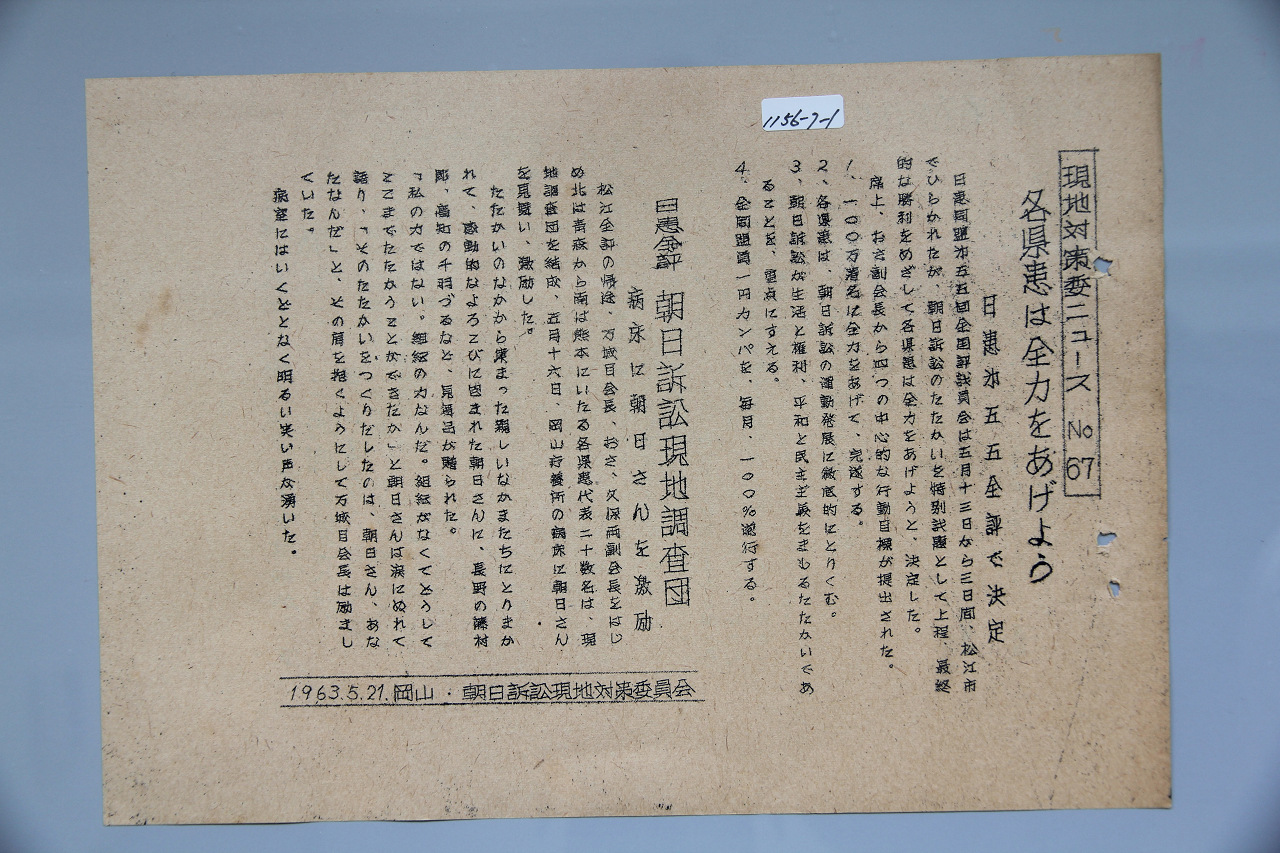 1156-7-1
現地対策委ニュース No 67
各県患は全力をあげよう
日患㐧五五全評で決定
日患同盟㐧五五回全国評議員会は五月十三日から三日間、松江市
でひらかれたが、朝日訴訟のたたかいを特別議題として上程、最終
的な勝利をめざして各県患は全力をあげようと、決定した。
席上、おさ副会長から四つの中心的な行動目標が提出された。
1、一〇〇万署名に全力をあげて、完遂する。
2、各県患は、朝日訴訟の運動発展に徹底的にとりくむ。
3、朝日訴訟が生活と権利、平和と民主主義をまもるたたかいであ
ることを、重点にすえる。
4、全同盟員一円カンパを、毎月、一〇〇%遂行する。
日患全評 朝日訴訟現地調査団
病床に朝日さんを激励
松江全評の帰途、万城目会長、おさ、久保両副会長をはじ
め北は青森から南は熊本にいたる各県患代表二十数名は、現
地調査団を結成、五月十六日、岡山療養所の病床に朝日さん
を見舞い、激励した。
たたかいのなかから集まった親しいなかまたちにとりまか
れて、感動的なよろこびに包まれた朝日さんに、長野の藤村
郎、高知の千羽づるなど、見舞品が贈られた。
「私の力ではない。組織の力なんだ。組織がなくてどうして
ここまでたたかうことができたか」と朝日さんは涙にぬれて
語り、「そのたたかいをつくりだしたのは、朝日さん、あな
たなんだ」と、その肩を抱くようにして万城目会長は励まし
ていた。
病室にはいくどとなく明るい笑い声が湧いた。
1963.5.21.岡山・朝日訴訟現地対策委員会